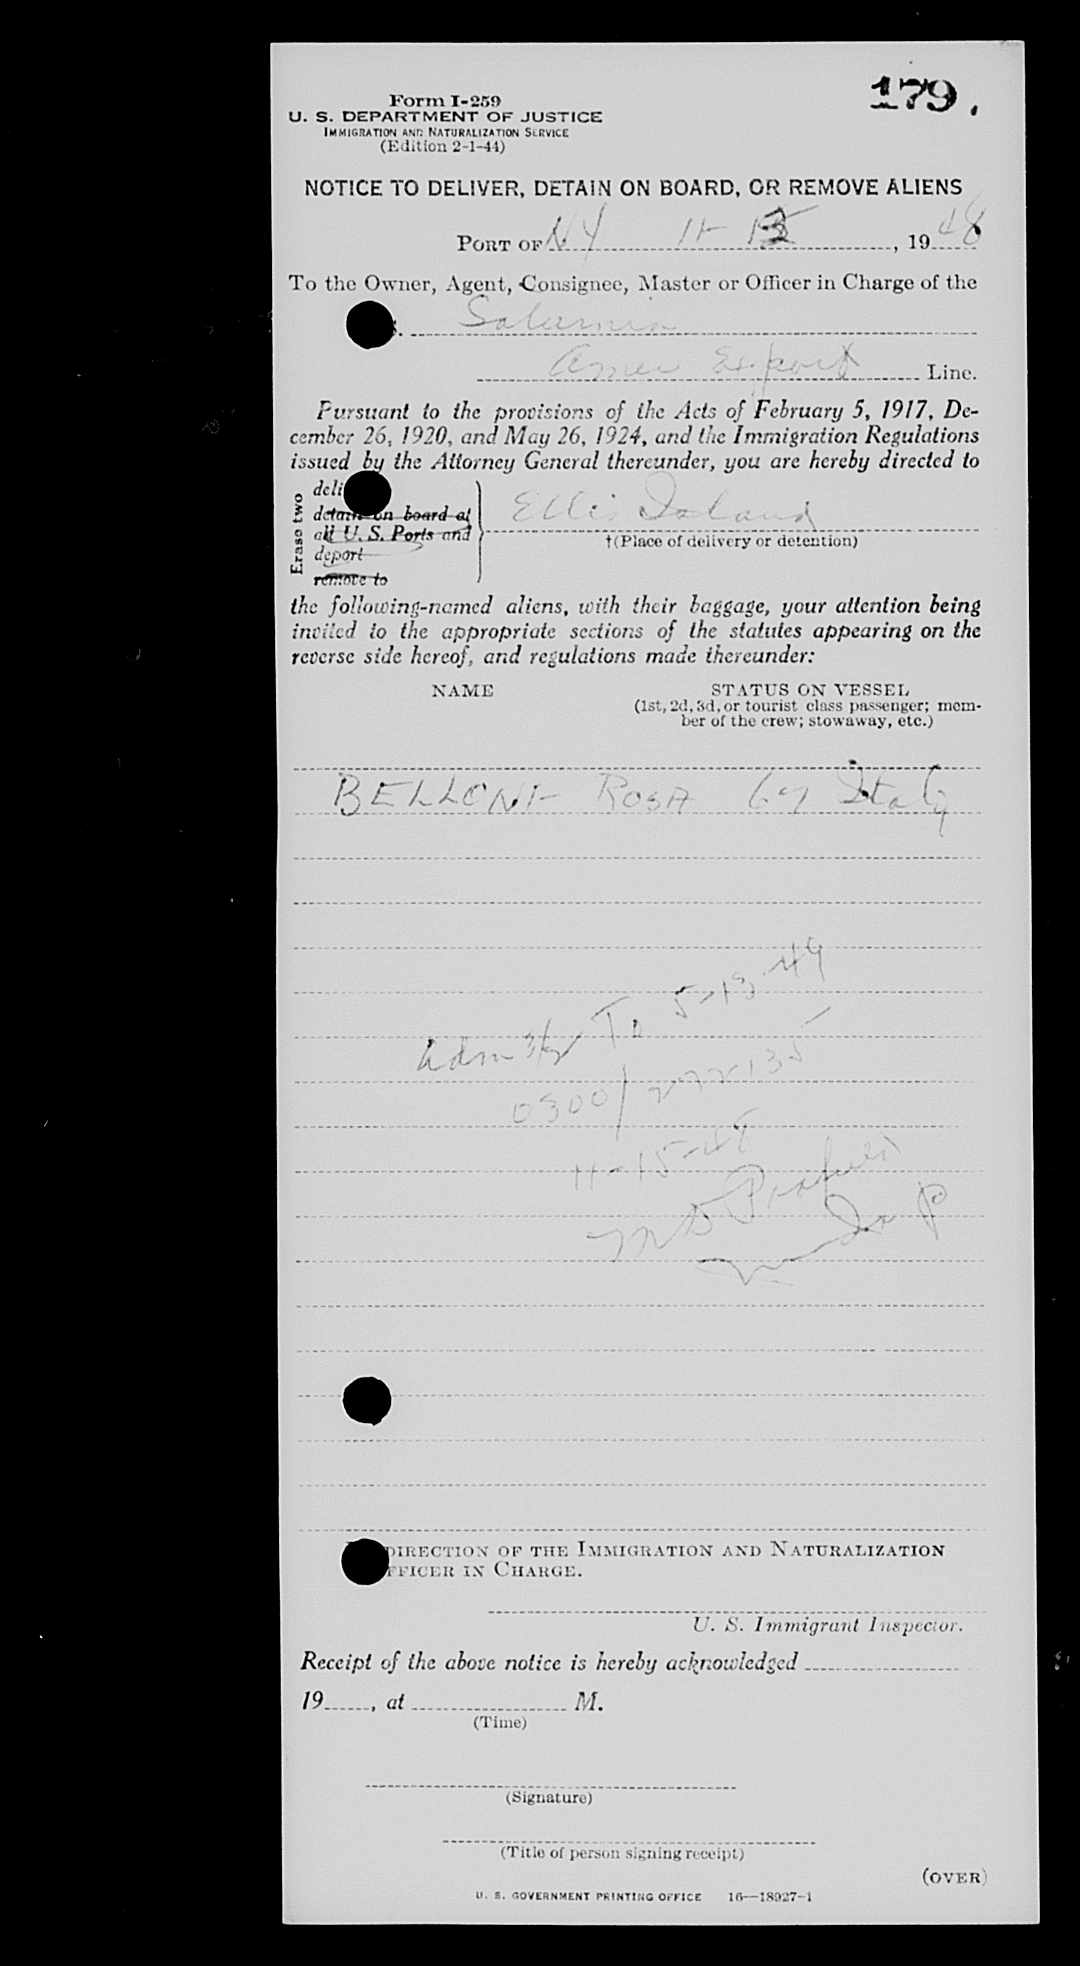 179.
Form I-259
U. S. DEPARTMENT OF JUSTICE
IMMIGRATION AND NATURALIZATION SERVICE
(Edition 2-1-44)
NOTICE TO DELIVER, DETAIN ON BOARD, OR REMOVE ALIENS
PORT OF NY 11- 15, 1948
To the Owner, Agent, Consignee, Master or Officer in Charge of the
Saturnia
Amer Export Line.
Pursuant to the provisions of the Acts of February 5, 1917, De-
cember 26, 1920, and May 26, 1924, and the Immigration Regulations
issued by the Attorney General thereunder, you are hereby directed to
Erase two
deli
detain on board at
all U. S. Ports and
deport
remove to
Ellis Island
†(Place of delivery or detention)
the following-named aliens, with their baggage, your attention being
invited to the appropriate sections of the statutes appearing on the
reverse side hereof, and regulations made thereunder:
NAME STATUS ON VESSEL
(1st, 2d, 3d, or tourist class passenger; mem-
ber of the crew; stowaway, etc.)
BELLONI ROSA 67 Italy
Adm 3/2 To 5-13-49
0300/272135
11-15-48
DIRECTION OF THE IMMIGRATION AND NATURALIZATION
FFICER IN CHARGE.
U. S. Immigrant Inspector.
Receipt of the above notice is hereby acknowledged
19, at M.
(Time)
(Signature)
(Title of person signing receipt)
(OVER)
U. S. GOVERNMENT PRINTING OFFICE 16—18927-1